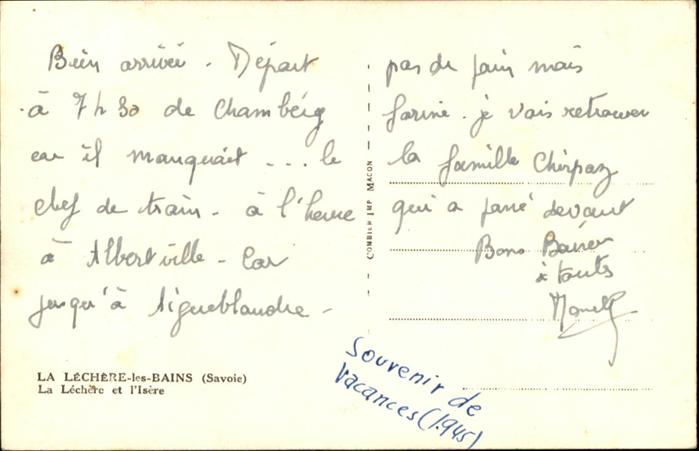 Bien arrivée. Départ
à 7 h 30 de Chambéry
car il manquait ... le
chef de train. à l'heure
à Albertville - Car
jusqu'à Aigueblanche -
pas de pain mais
farine. je vais retrouver
la famille Cherpaz
qui a passé devant
Bons Baisers
à toutes
COMBIER IMP MACON
LA LÉCHÈRE-les-BAINS (Savoie)
La Léchère et l'Isère
Souvenir de
Vacances (1945)